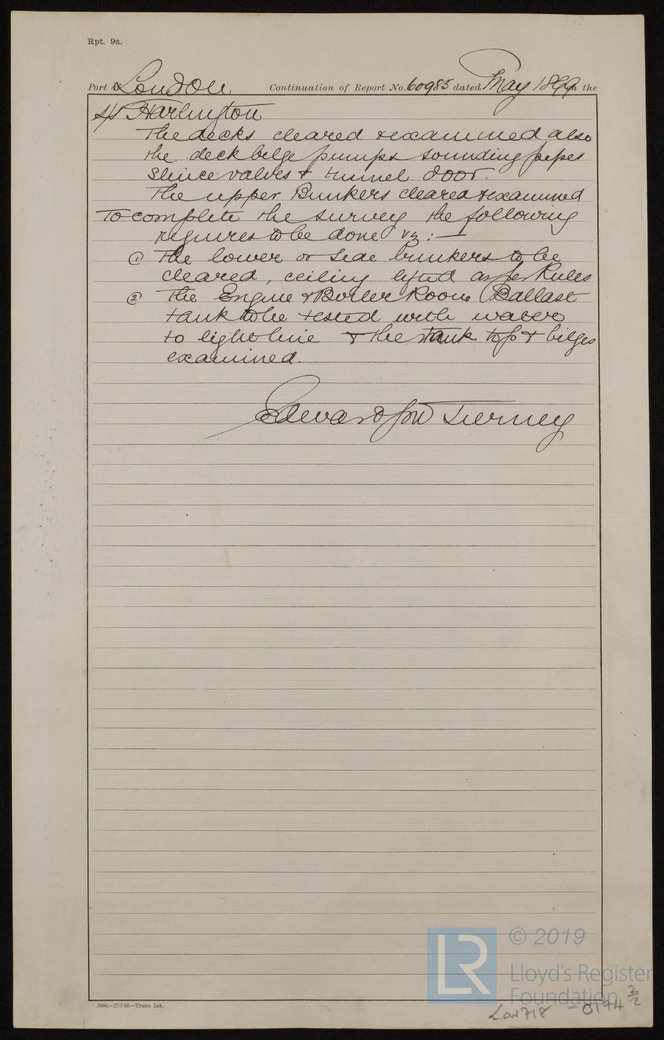 Rpt. 9a.
Port of London Continuation of Report No. 60985 dated May 1899 on the
SS Harlington
The decks cleared & examined also
the deck bilge pumps sounding pipes
Sluice valves & tunnel door.
The upper Bunkers cleared & examined
To complete the survey the following
requires to be done vz: —
① The lower or side bunkers to be
cleared, ceiling lifted as per Rules
② The Engine & Boiler Room Ballast
tank to be tested with water
to light line & the tank top & bilges
examined.
Edward Tierney
© 2019
LR
Lloyd's Register
Foundation
Lon718 - 0174 2/2